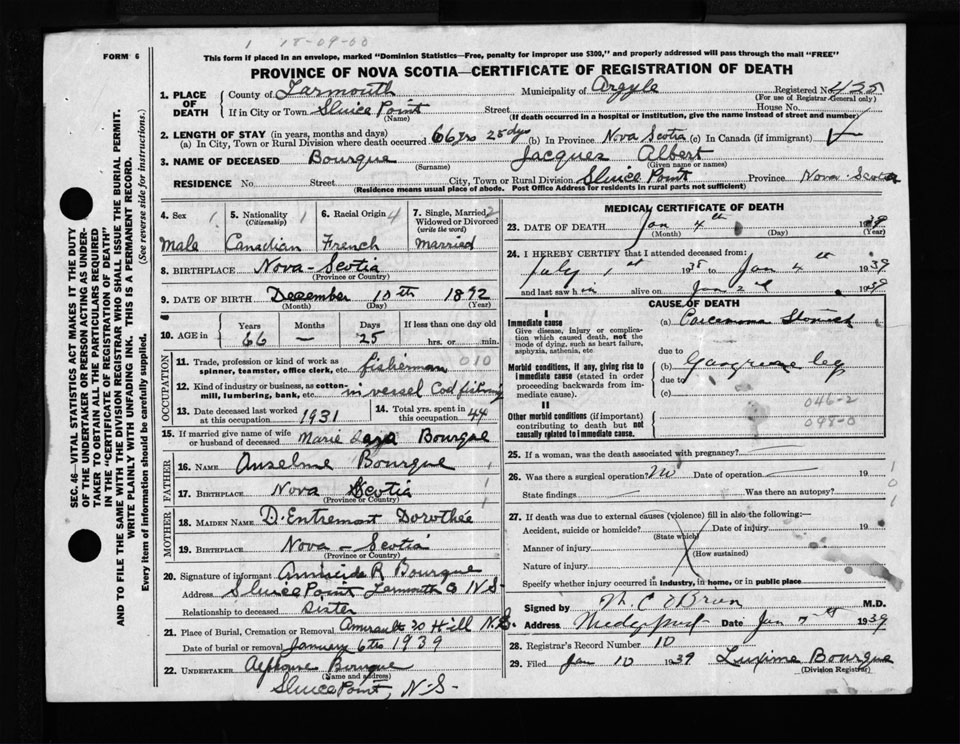 1 18-09-00
FORM 6
This form if placed in an envelope, marked "Dominion Statistics—Free, penalty for improper use $300," and properly addressed will pass through the mail "FREE"
PROVINCE OF NOVA SCOTIA—CERTIFICATE OF REGISTRATION OF DEATH
SEC. 46—VITAL STATISTICS ACT MAKES IT THE DUTY
OF THE UNDERTAKER OR PERSON ACTING AS UNDER-
TAKER TO OBTAIN ALL THE PARTICULARS REQUIRED
IN THE "CERTIFICATE OF REGISTRATION OF DEATH"
AND TO FILE THE SAME WITH THE DIVISION REGISTRAR WHO SHALL ISSUE THE BURIAL PERMIT.
WRITE PLAINLY WITH UNFADING INK. THIS IS A PERMANENT RECORD.
Every item of information should be carefully supplied. (See reverse side for instructions.)
1. PLACE OF DEATH County of Yarmouth Municipality of Argyle Registered No. 435
(For use of Registrar-General only)
If in City or Town Sluice Point Street House No.
(Name) (If death occurred in a hospital or institution, give the name instead of street and number)
2. LENGTH OF STAY (in years, months and days)
(a) In City, Town or Rural Division where death occurred 66 yrs 25 dys (b) In Province Nova Scotia (c) In Canada (if immigrant)
3. NAME OF DECEASED Bourque Jacques Albert
(Surname) (Given name or names)
RESIDENCE No. Street City, Town or Rural Division Sluice Point Province Nova-Scotia
(Residence means usual place of abode. Post Office Address for residents in rural parts not sufficient)
4. Sex 1 5. Nationality 1 6. Racial Origin 4 7. Single, Married, 2
(Citizenship) Widowed or Divorced
(write the word)
Male Canadian French Married
8. BIRTHPLACE Nova-Scotia
(Province or Country)
9. DATE OF BIRTH December 10th 1872
(Month) (Day) (Year)
10. AGE in Years Months Days If less than one day old
66 — 25 hrs. or min.
OCCUPATION
11. Trade, profession or kind of work as
spinner, teamster, office clerk, etc. fisherman 010
12. Kind of industry or business, as cotton-
mill, lumbering, bank, etc. in vessel Cod fishing
13. Date deceased last worked
at this occupation 1931
14. Total yrs. spent in
this occupation 44
15. If married give name of wife
or husband of deceased Marie Bourque
FATHER
16. NAME Anselme Bourque
17. BIRTHPLACE Nova Scotia
(Province or Country)
MOTHER
18. MAIDEN NAME D'Entremont Dorothée
19. BIRTHPLACE Nova-Scotia
(Province or Country)
20. Signature of informant R Bourque
Address Sluice Point Yarmouth Co N S-
Relationship to deceased Sister
21. Place of Burial, Cremation or Removal Amirault Hill N.S.
Date of burial or removal January 6th 1939
22. UNDERTAKER Alphonse Bourque
(Name and address)
Sluice Point, N-S-
MEDICAL CERTIFICATE OF DEATH
23. DATE OF DEATH Jan 4th 1939
(Month) (Day) (Year)
24. I HEREBY CERTIFY that I attended deceased from:
July 1st 1938 to Jan 4th 1939
and last saw h im alive on Jan 2nd 1939
CAUSE OF DEATH
I
Immediate cause
Give disease, injury or complica-
tion which caused death, not the
mode of dying, such as heart failure,
asphyxia, asthenia, etc
(a) Carcinoma Stomach
due to
Morbid conditions, if any, giving rise to
immediate cause (stated in order
proceeding backwards from im-
mediate cause).
(b) Gangrene leg
due to
(c)
II
Other morbid conditions (if important)
contributing to death but not
causally related to immediate cause.
046-2
098-0
25. If a woman, was the death associated with pregnancy?
26. Was there a surgical operation? No Date of operation 19
State findings Was there an autopsy?
27. If death was due to external causes (violence) fill in also the following:—
Accident, suicide or homicide? Date of injury 19
(State which)
Manner of injury
(How sustained)
Nature of injury
Specify whether injury occurred in industry, in home, or in public place
Signed by M. C. O'Brien M.D.
Address Wedgeport Date Jan 7th 1939
28. Registrar's Record Number 10
29. Filed Jan 10 1939 Luxime Bourque
(Division Registrar)